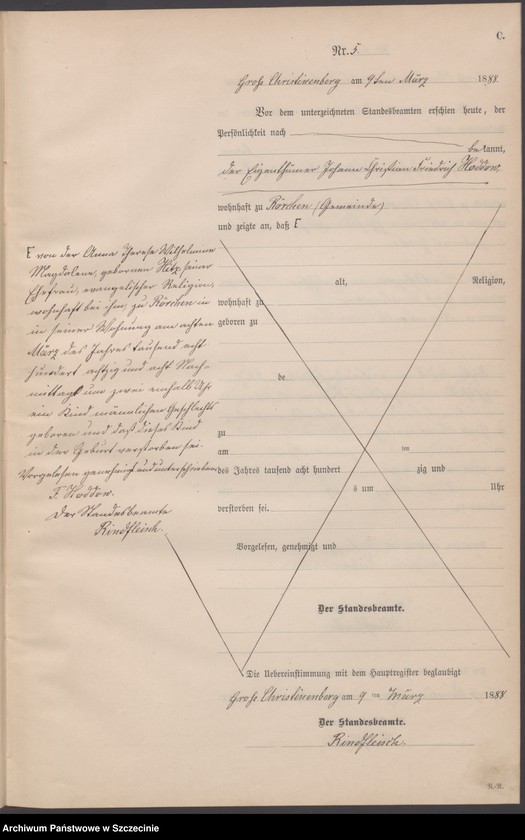 C.
Nr. 5.
Groß Christinenberg am 9ten März 1888
Vor dem unterzeichneten Standesbeamten erschien heute, der
Persönlichkeit nach
bekannt,
der Eigenthümer Johann Christian Friedrich Koddow,
wohnhaft zu Rörchen (Gemeinde)
und zeigte an, daß Γ
Γ von der Anna Therese Wilhelmine
Magdalene, geborenen Hitz, seiner
Ehefrau, evangelischer Religion,
wohnhaft bei ihm, zu Rörchen in
in seiner Wohnung am achten
März des Jahres tausend acht
hundert achtzig und acht Nach-
mittags um zwei einhalb Uhr
ein Kind männlichen Geschlechts
geboren und daß dieses Kind
in der Geburt verstorben sei.
Vorgelesen genehmigt und unterschrieben
F. Koddow.
Der Standesbeamte
Rindfleisch.
alt, Religion,
wohnhaft zu
geboren zu
de
zu
am ten
des Jahres tausend acht hundert zig und
s um Uhr
verstorben sei.
Vorgelesen, genehmigt und
Der Standesbeamte.
Die Uebereinstimmung mit dem Hauptregister beglaubigt
Groß Christinenberg am 9 ten März 1888
Der Standesbeamte.
Rindfleisch.
R.-R.
Archiwum Państwowe w Szczecinie